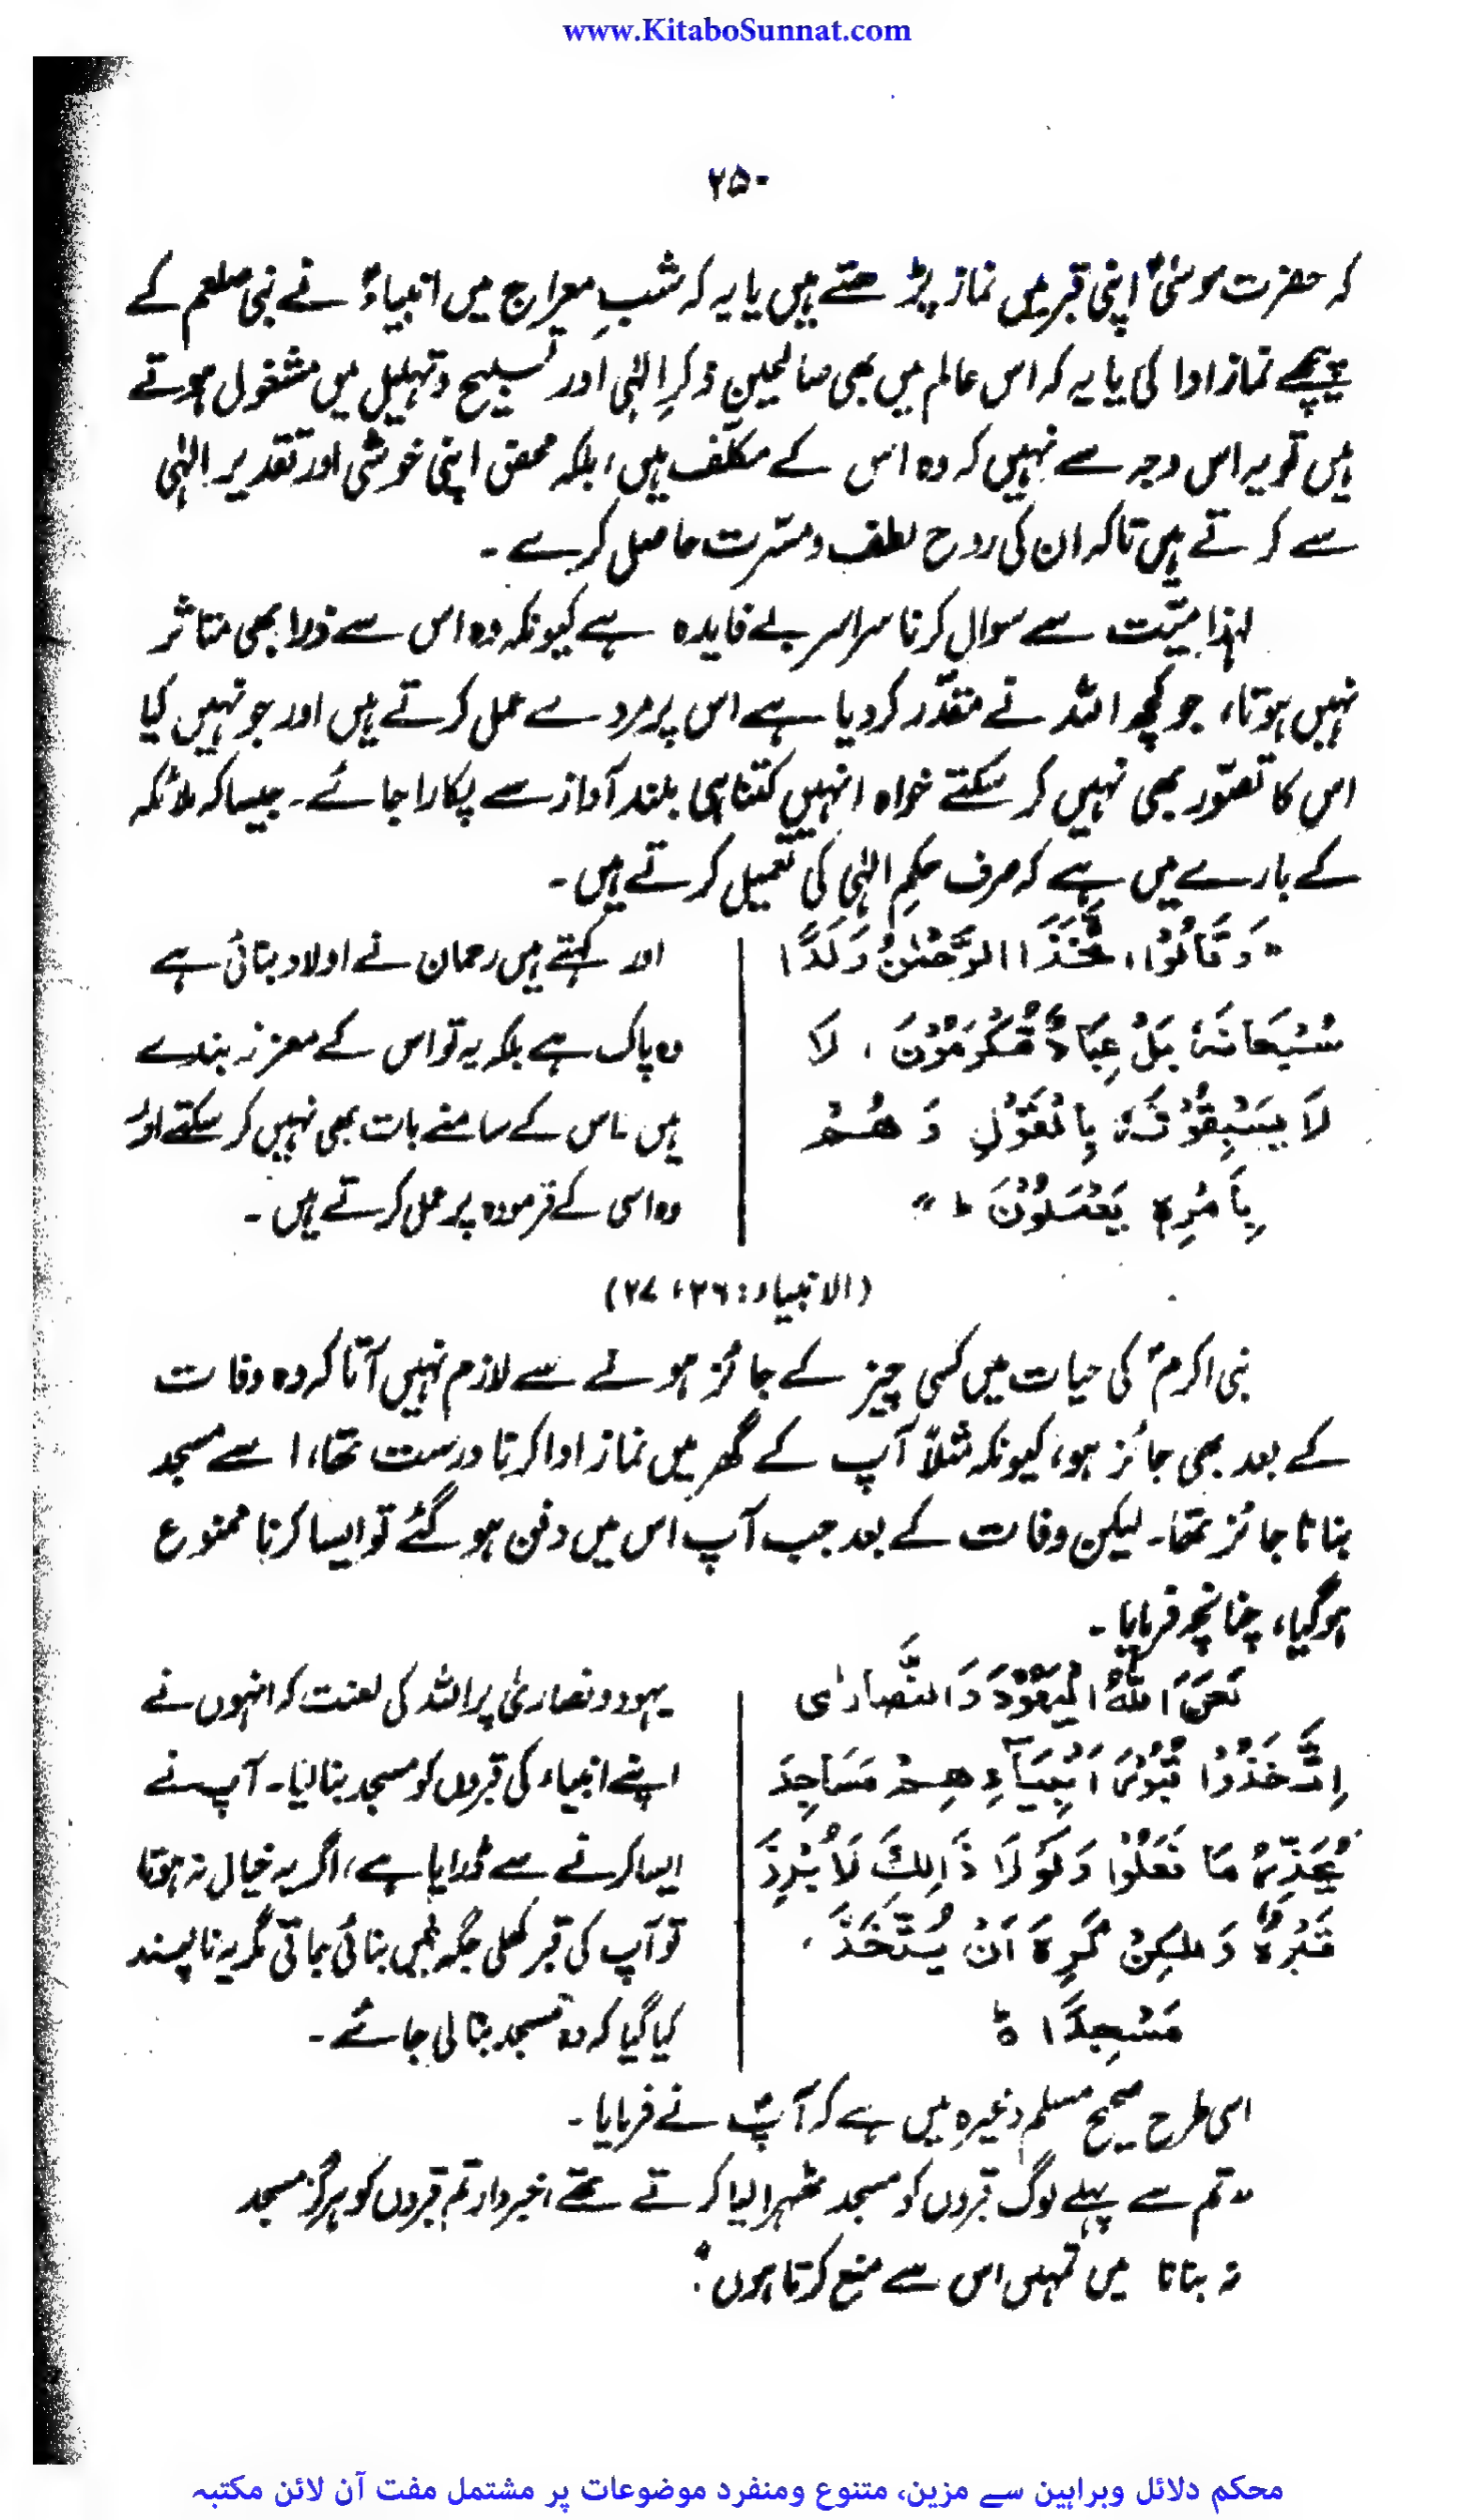 www.KitaboSunnat.com
۲۵۰
کہ حضرت موسیٰؑ اپنی قبر میں نماز پڑھتے ہیں یا یہ کہ شبِ معراج میں انبیاءؑ نے نبی صلعم کے
پیچھے نماز ادا کی یا یہ کہ اس عالم میں بھی صالحین ذکرِ الٰہی اور تسبیح و تہلیل میں مشغول ہوتے
ہیں تو یہ اس وجہ سے نہیں کہ وہ اس کے مکلّف ہیں، بلکہ محض اپنی خوشی اور تقدیر الٰہی
سے کرتے ہیں تاکہ ان کی روح لطف و مسّرت حاصل کرے۔
لہٰذا میّت سے سوال کرنا سراسر بے فایدہ ہے کیونکہ وہ اس سے ذرا بھی متاثر
نہیں ہوتا، جو کچھ اللہ نے مقدّر کردیا ہے اس پر مردے عمل کرتے ہیں اور جو نہیں کیا
اس کا تصّور بھی نہیں کر سکتے خواہ انہیں کتنا ہی بلند آواز سے پکارا جائے۔ جیسا کہ ملائکہ
کے بارے میں ہے کہ صرف حکمِ الٰہی کی تعمیل کرتے ہیں۔
"وَقَالُوْا اتَّخَذَ الرَّحْمٰنُ وَلَدًا
سُبْحَانَہٗ بَلْ عِبَادٌ مُّکْرَمُوْنَ، لَا
لَا یَسْبِقُوْنَہٗ بِالْقَوْلِ وَھُمْ
بِاَمْرِہٖ یَعْمَلُوْنَ ط"
اور کہتے ہیں رحمان نے اولاد بنائی ہے
وہ پاک ہے بلکہ یہ تو اس کے معزز بندے
ہیں۔ اس کے سامنے بات بھی نہیں کر سکتے اور
وہ اسی کے فرمودہ پر عمل کرتے ہیں۔
(الانبیاء: ۲۶، ۲۷)
نبی اکرمؐ کی حیات میں کسی چیز کے جائز ہونے سے لازم نہیں آتا کہ وہ وفات
کے بعد بھی جائز ہو، کیونکہ مثلاً آپ کے گھر میں نماز ادا کرنا درست تھا، اسے مسجد
بنانا جائز تھا۔ لیکن وفات کے بعد جب آپ اس میں دفن ہو گئے تو ایسا کرنا ممنوع
ہوگیا، چنانچہ فرمایا۔
لَعَنَ اللہُ الْیَھُوْدَ وَالنَّصَارٰی
اِتَّخَذُوْا قُبُوْرَ اَنْبِیَآءِھِمْ مَسَاجِدَ
یُحَذِّرُ مَا فَعَلُوْا وَلَوْلَا ذَالِکَ لَاُبْرِزَ
قَبْرُہٗ وَلٰکِنْ کَرِہَ اَنْ یُتَّخَذَ
مَسْجِدًا ہ ط
یہود و نصاریٰ پر اللہ کی لعنت کہ انہوں نے
اپنے انبیاء کی قبروں کو مسجد بنا لیا۔ آپ نے
ایسا کرنے سے ڈرایا ہے، اگر یہ خیال نہ ہوتا
تو آپ کی قبر کھلی جگہ میں بنائی جاتی مگر یہ ناپسند
کیا گیا کہ وہ مسجد بنا لی جائے۔
اسی طرح صحیح مسلم وغیرہ میں ہے کہ آپؐ نے فرمایا۔
"تم سے پہلے لوگ قبروں کو مسجد ٹھہرا لیا کرتے تھے، خبردار تم قبروں کو ہرگز مسجد
نہ بنانا میں تمہیں اس سے منع کرتا ہوں"۔
محکم دلائل وبراہین سے مزین، متنوع ومنفرد موضوعات پر مشتمل مفت آن لائن مکتبہ